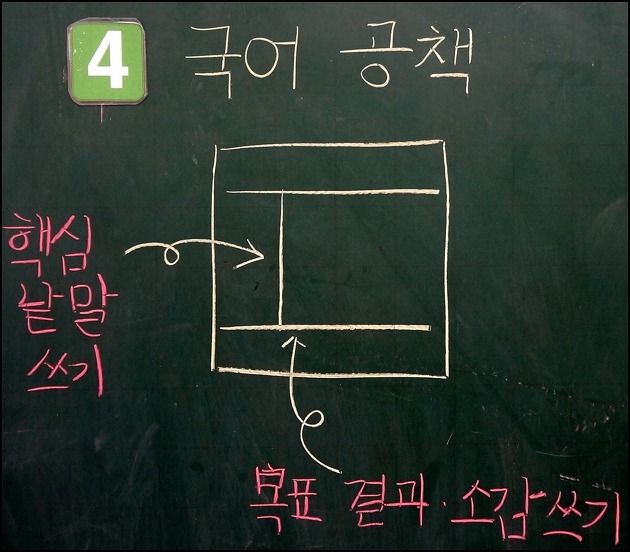 4 국어 공책
핵심
낱말
쓰기
목표 결과·소감쓰기